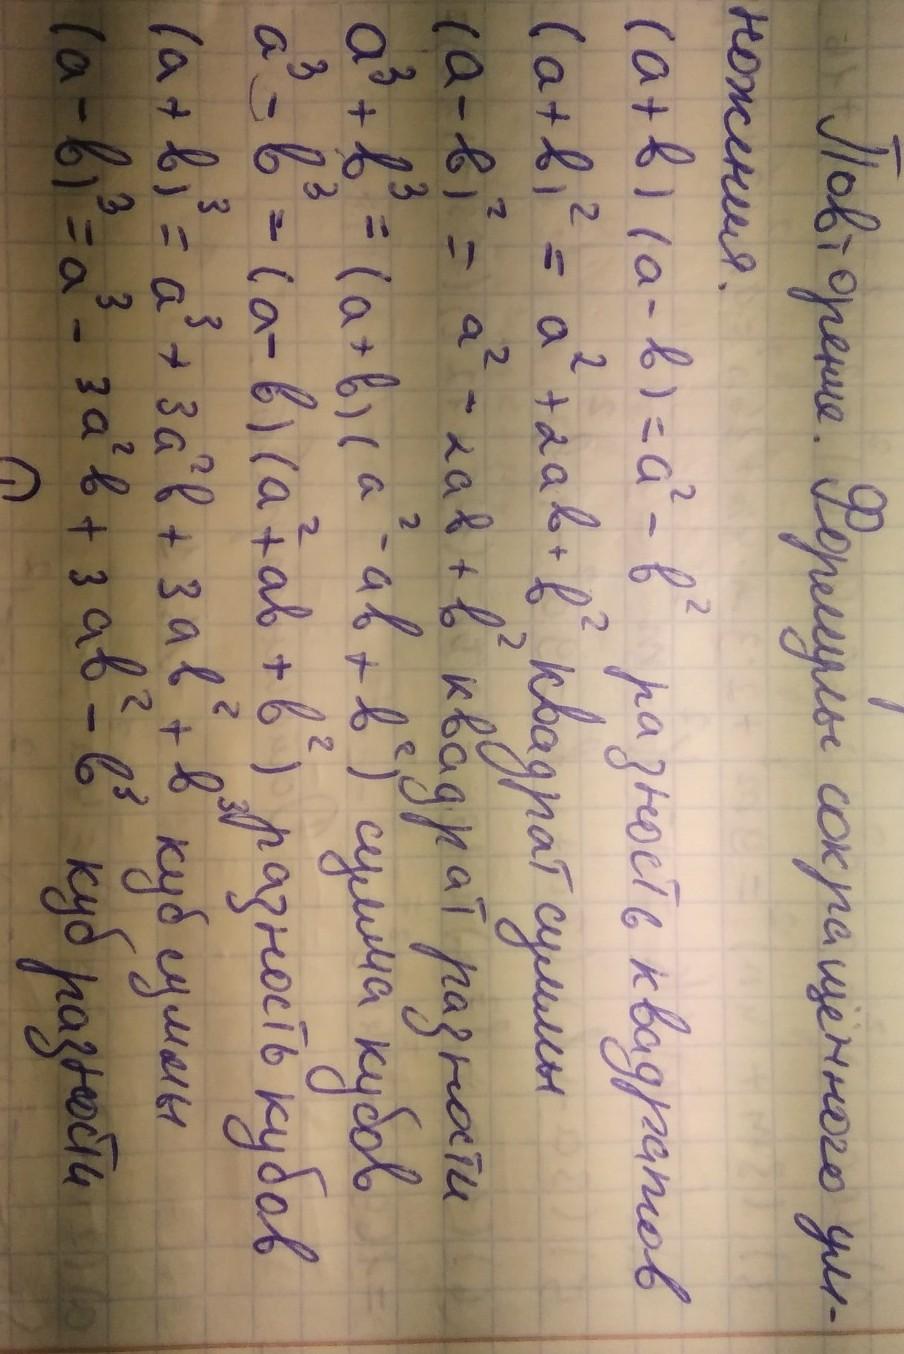 Повторение. Формулы сокращённого ум-
ножения.
(a + b) (a - b) = a² - b² разность квадратов
(a + b)² = a² + 2ab + b² квадрат суммы
(a - b)² = a² - 2ab + b² квадрат разности
a³ + b³ = (a + b) (a² - ab + b²) сумма кубов
a³ - b³ = (a - b) (a² + ab + b²) разность кубов
(a + b)³ = a³ + 3a²b + 3ab² + b³ куб суммы
(a - b)³ = a³ - 3a²b + 3ab² - b³ куб разности